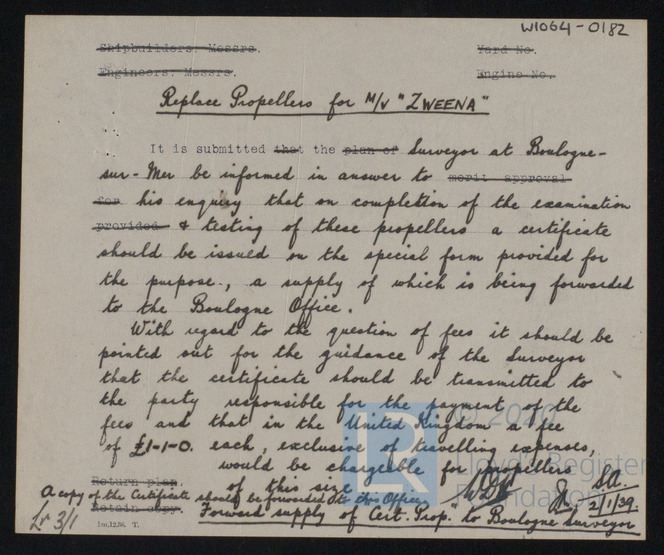 W1064-0182
Shipbuilders. Messrs. Yard No.
Engineers. Messrs. Engine No.
Replace Propellers for M/V "ZWEENA"
It is submitted that the plan of Surveyor at Boulogne-
sur-Mer be informed in answer to merit approval
for his enquiry that on completion of the examination
provided & testing of these propellers a certificate
should be issued on the special form provided for
the purpose, a supply of which is being forwarded
to the Boulogne Office.
With regard to the question of fees it should be
pointed out for the guidance of the Surveyor
that the certificate should be transmitted to
the party responsible for the payment of the
fees and that in the United Kingdom a fee
of £1-1-0. each, exclusive of travelling expenses,
would be chargeable for propellers
Return plan. of this size.
A copy of the Certificate should be forwarded to this Office
Retain copy. Forward supply of Cert. Prop." to Boulogne Surveyor
Lr 3/1
1m,12.36. T.
SA.
2/1/39
LR
© 2020
Lloyd's Register
Foundation